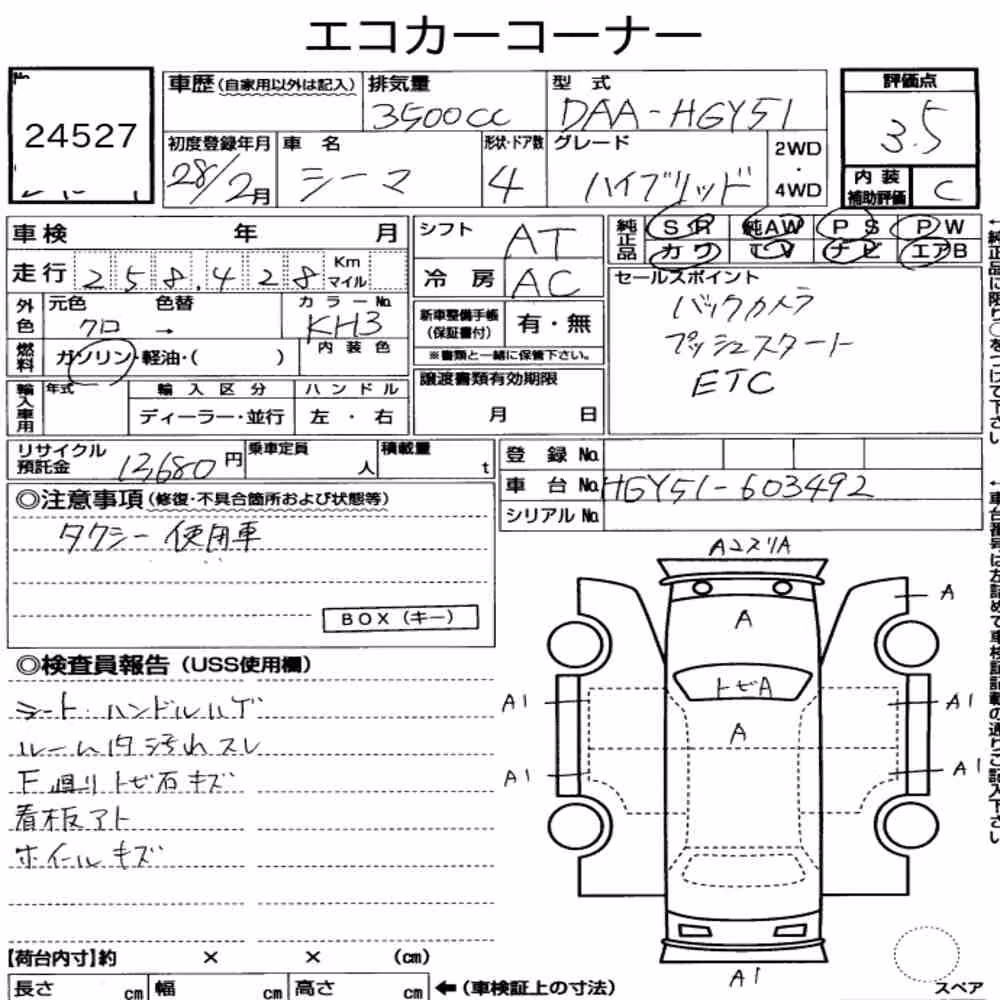 エコカーコーナー
No
24527
車歴(自家用以外は記入)
排気量
3500cc
型 式
DAA-HGY51
評価点
3.5
初度登録年月
28/2月
車 名
シーマ
形状・ドア数
4
グレード
ハイブリッド
2WD・4WD
内装補助評価
C
車検 年 月
走行 258,428 Km マイル
シフト
AT
冷 房
AC
純正品
SR 純AW PS PW
カワ TV ナビ エアB
セールスポイント
バックカメラ
プッシュスタート
ETC
外色
元色 色替
クロ →
カラーNo.
KH3
内装色
燃料
ガソリン・軽油・( )
新車整備手帳(保証書付)
有・無
※書類と一緒に保管下さい。
譲渡書類有効期限
月 日
輸入車用
年式
輸入区分
ディーラー・並行
ハンドル
左・右
リサイクル預託金
13680円
乗車定員
人
積載量
t
登録 No.
車台 No.
HGY51-603492
シリアル No.
◎注意事項(修復・不具合箇所および状態等)
タクシー使用車
BOX(キー)
◎検査員報告(USS使用欄)
シート.ハンドルハゲ
ルーム内汚れスレ
F廻りトビ石キズ
看板アト
ホイールキズ
【荷台内寸】約 × × (cm)
長さ cm 幅 cm 高さ cm
←(車検証上の寸法)
A2スリA
A
A
トビA
A
A1
A1
A1
A1
A1
スペア
←純正品に限り○をつけて下さい
←車台番号は左詰めで車検証記載の通りご記入下さい